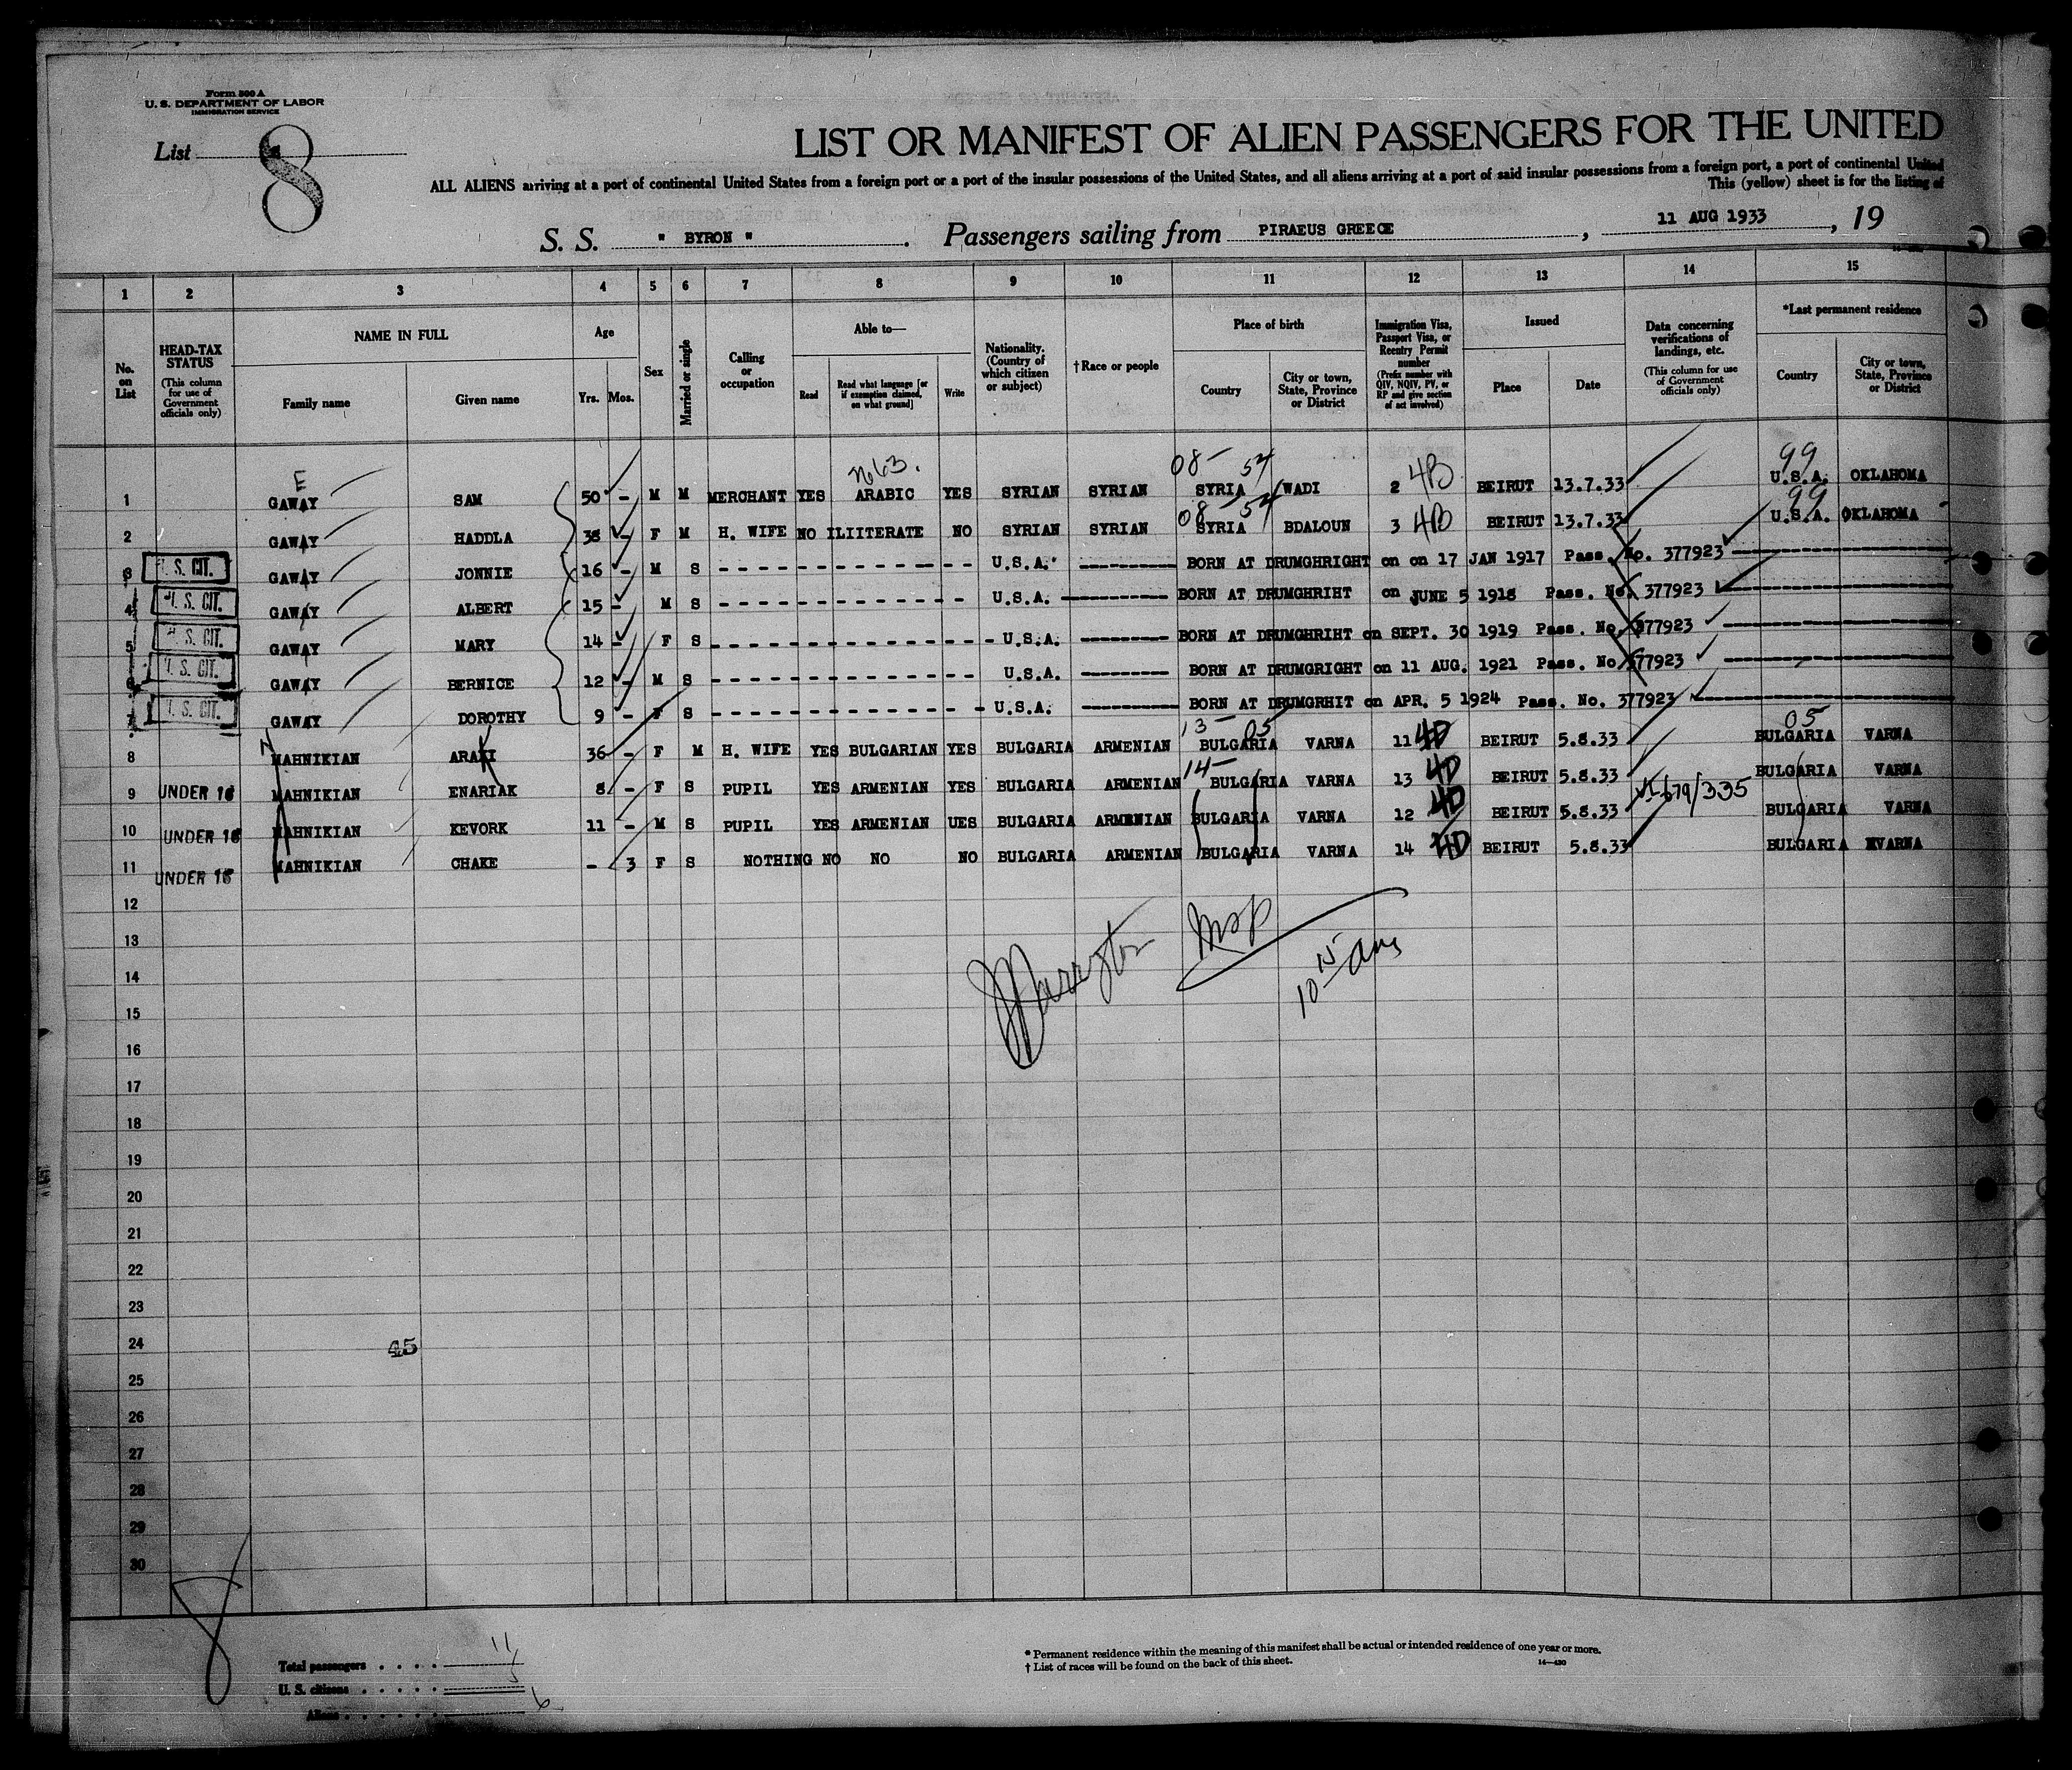 Form 500 A
U. S. DEPARTMENT OF LABOR
IMMIGRATION SERVICE
List 8
LIST OR MANIFEST OF ALIEN PASSENGERS FOR THE UNITED
ALL ALIENS arriving at a port of continental United States from a foreign port or a port of the insular possessions of the United States, and all aliens arriving at a port of said insular possessions from a foreign port, a port of continental United
This (yellow) sheet is for the listing of
S. S. " BYRON " . Passengers sailing from PIRAEUS GREECE , 11 AUG 1933 , 19
1 2 3 4 5 6 7 8 9 10 11 12 13 14 15
No. on List
HEAD-TAX STATUS (This column for use of Government officials only)
NAME IN FULL Family name Given name
Age Yrs. Mos.
Sex
Married or single
Calling or occupation
Able to— Read Read what language [or if exemption claimed, on what ground] Write
Nationality. (Country of which citizen or subject)
† Race or people
Place of birth Country City or town, State, Province or District
Immigration Visa, Passport Visa, or Reentry Permit number (Prefix number with QIV, NQIV, PV, or RP and give section of act involved)
Issued Place Date
Data concerning verifications of landings, etc. (This column for use of Government officials only)
*Last permanent residence Country City or town, State, Province or District
E 08- 54 99
1 GAWAY SAM 50 - M M MERCHANT YES ARABIC YES SYRIAN SYRIAN SYRIA WADI 2 4B BEIRUT 13.7.33 U.S.A. OKLAHOMA
08- 54 99
2 GAWAY HADDLA 38 - F M H. WIFE NO ILIITERATE NO SYRIAN SYRIAN SYRIA BDALOUN 3 4B BEIRUT 13.7.33 U.S.A. OKLAHOMA
3 U. S. CIT. GAWAY JONNIE 16 - M S - - - - - - - - - - - - - U.S.A. ---------- BORN AT DRUMGHRIGHT on on 17 JAN 1917 Pass. No. 377923
4 U. S. CIT. GAWAY ALBERT 15 - M S - - - - - - - - - - - - - U.S.A. ---------- BORN AT DRUMGHRIHT on JUNE 5 1918 Pass. No. 377923
5 U. S. CIT. GAWAY MARY 14 - F S - - - - - - - - - - - - - U.S.A. ---------- BORN AT DRUMGHRIHT on SEPT. 30 1919 Pass. No. 377923
6 U. S. CIT. GAWAY BERNICE 12 - M S - - - - - - - - - - - - - U.S.A. ---------- BORN AT DRUMGRIGHT on 11 AUG. 1921 Pass. No 377923
7 U. S. CIT. GAWAY DOROTHY 9 - F S - - - - - - - - - - - - - U.S.A. ---------- BORN AT DRUMGRHIT on APR. 5 1924 Pass. No. 377923
13- 05 05
8 MAHNIKIAN ARAKI 36 - F M H. WIFE YES BULGARIAN YES BULGARIA ARMENIAN BULGARIA VARNA 11 4D BEIRUT 5.8.33 BULGARIA VARNA
14-
9 UNDER 16 MAHNIKIAN ENARIAK 8 - F S PUPIL YES ARMENIAN YES BULGARIA ARMENIAN BULGARIA VARNA 13 4D BEIRUT 5.8.33 BULGARIA VARNA
10 UNDER 16 MAHNIKIAN KEVORK 11 - M S PUPIL YES ARMENIAN UES BULGARIA ARMENIAN BULGARIA VARNA 12 4D BEIRUT 5.8.33 BULGARIA VARNA
11 UNDER 16 MAHNIKIAN CHAKE - 3 F S NOTHING NO NO NO BULGARIA ARMENIAN BULGARIA VARNA 14 4D BEIRUT 5.8.33 BULGARIA VARNA
12
13
14
15
16
17
18
19
20
21
22
23
24 45
25
26
27
28
29
30
10 15 am
8
Total passengers . . . . 11
U. S. citizens . . . . . 5
Aliens . . . . . . 6
* Permanent residence within the meaning of this manifest shall be actual or intended residence of one year or more.
† List of races will be found on the back of this sheet. 14—430